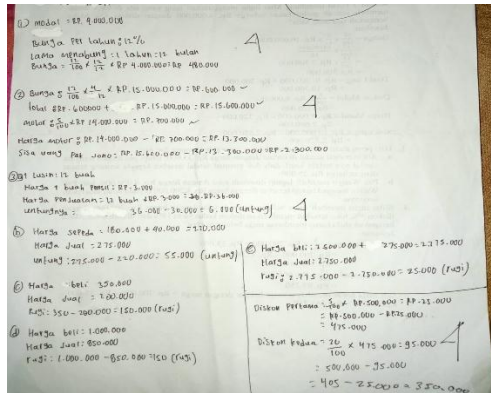 ① Modal : RP. 4.000.000
Bunga Per tahun : 12%
Lama menabung : 1 tahun : 12 bulan
Bunga = 12/100 × 12/12 × RP 4.000.000 = RP 480.000
4
② Bunga : 12/100 × 4/12 × RP.15.000.000 = RP.600.000
total : RP.600000 + RP.15.000.000 : RP.15.600.000
motor : 5/100 × RP 14.000.000 = RP.700.000
Harga motor : RP.14.000.000 - RP 700.000 = RP.13.300.000
Sisa uang Pak Jono : RP.15.600.000 - RP.13.300.000 = RP.2.300.000
4
③ 1 lusin : 12 buah
Harga 1 buah Pensil : RP 3.000
Harga Penjualan : 12 buah × RP.3.000 = RP.36.000
untungnya : 36.000 - 30.000 = 6.000 (untung)
4
b) Harga sepeda : 180.000 + 40.000 = 220.000
Harga Jual : 275.000
untung : 275.000 - 220.000 : 55.000 (untung)
c) Harga beli 350.000
Harga Jual = 200.000
Rugi : 350 - 200.000 = 150.000 (rugi)
d) Harga beli : 1.000.000
Harga Jual : 850.000
rugi : 1.000.000 - 850.000 = 150 (rugi)
e) Harga beli : 2.500.000 + 275.000 = 2.775.000
Harga Jual : 2.750.000
rugi : 2.775.000 - 2.750.000 = 25.000 (rugi)
Diskon Pertama = 5/100 × RP.500.000 : RP.25.000
= RP.500.000 - RP25.000
= 475.000
Diskon kedua = 20/100 × 475.000 = 95.000
= 500.000 - 95.000
= 405 - 25.000 = 350.000
4